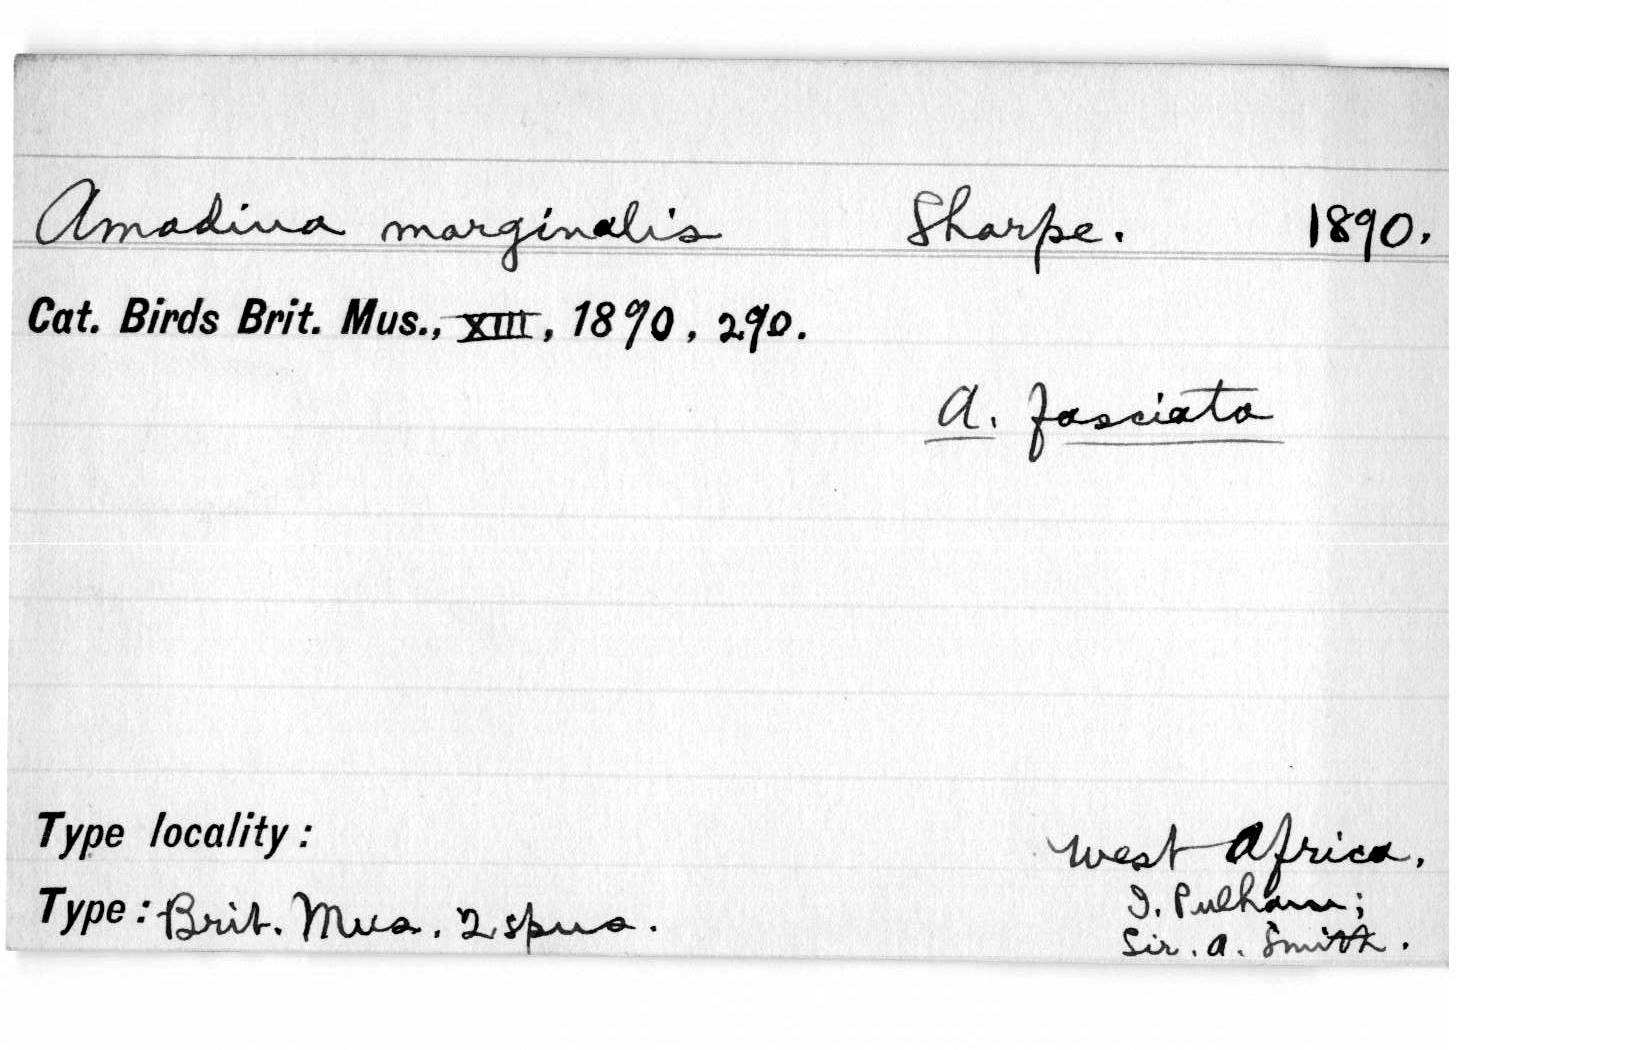 Amadina marginalis Sharpe. 1890.
Cat. Birds Brit. Mus., XIII, 1890, 290.
A. fasciata
Type locality: West Africa.
I. Pulham;
Type: Brit. Mus. 2 spns.
Sir. A. Smith.